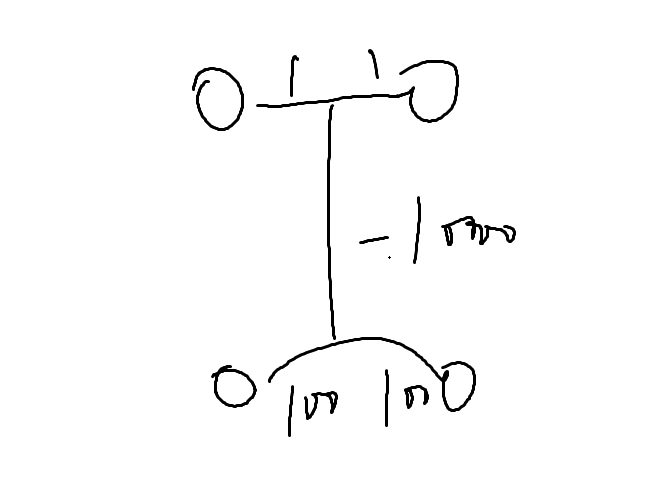 1 1
-10000
100 100